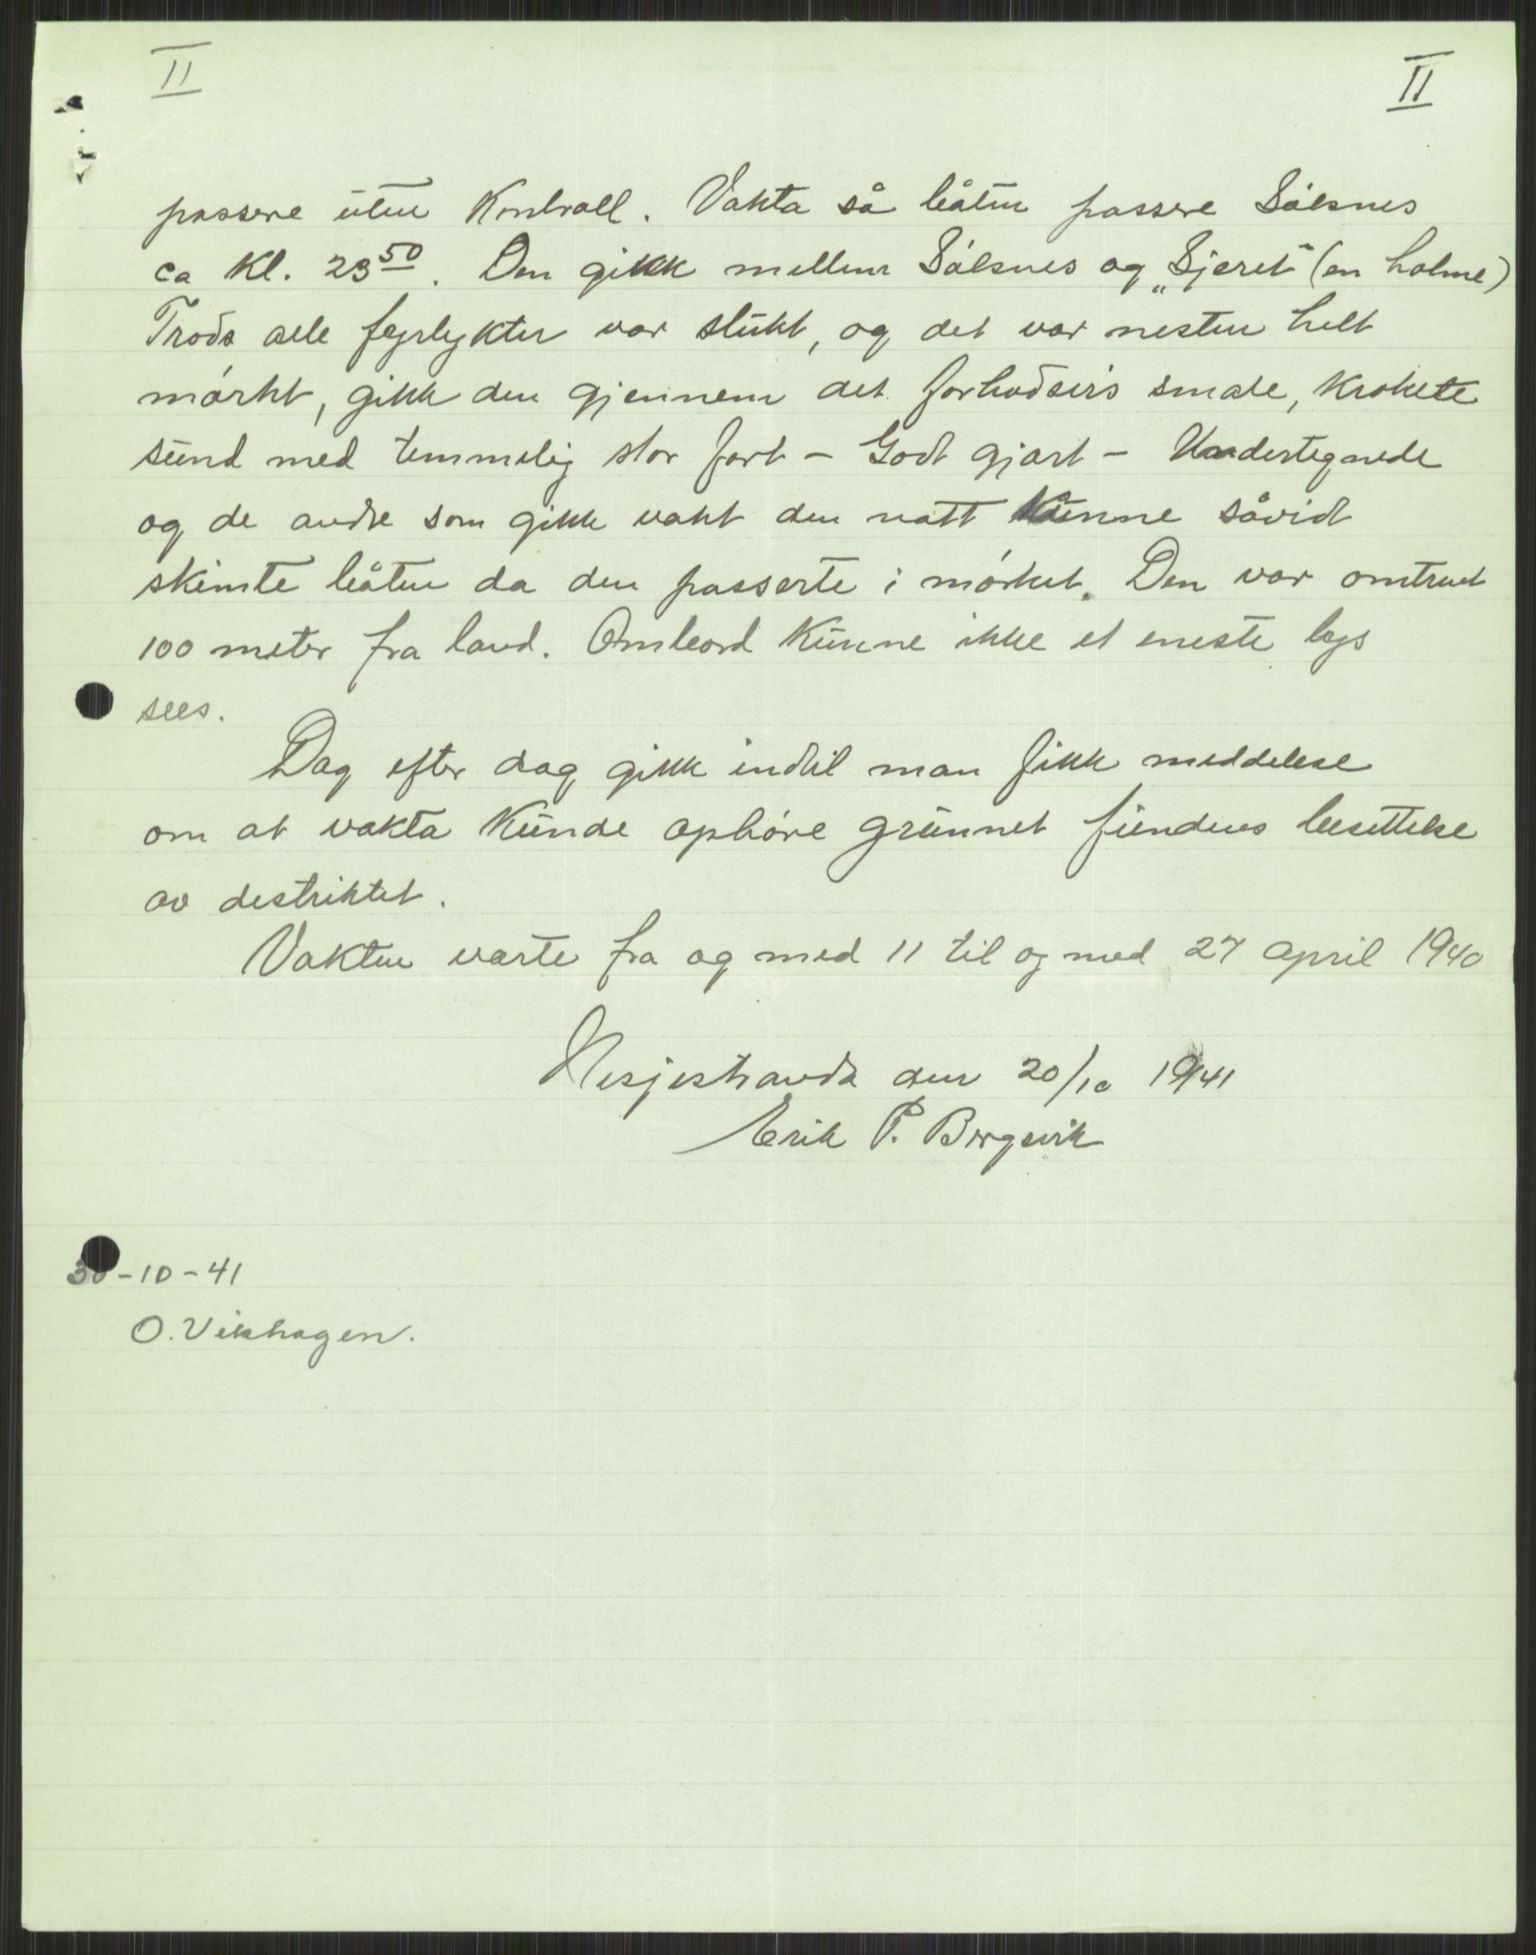 II II
passere uten Kontroll. Vakta så båten passere Sølsnes
ca Kl. 23⁵⁰. Den gikk mellem Sølsnes og „Sjæret“ (en holme)
Trods alle fyrlykter var slukt, og det var nesten helt
mørkt, gikk den gjennem det forholdsvis smale, krokete
sund med temmelig stor fart – Godt gjørt – Undertegnede
og de andre som gikk vakt den natt Kunne såvidt
skimte båten da den passerte i mørket. Den var omtrent
100 meter fra land. Ombord Kunne ikke et eneste lys
sees.
Dag efter dag gikk indtil man fikk meddelese
om at vakta Kunde ophøre grunnet fiendens besettelse
av destriktet.
Vakten varte fra og med 11 til og med 27 april 1940
Nesjestranda den 20/10 1941
Erik P. Bergsvik
30-10-41
O. Vikhagen.